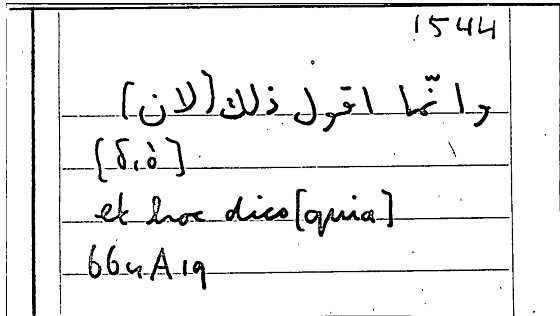 1544
وانّما اقول ذلك [لان]
[διὸ]
et hoc dico [quia]
664A19